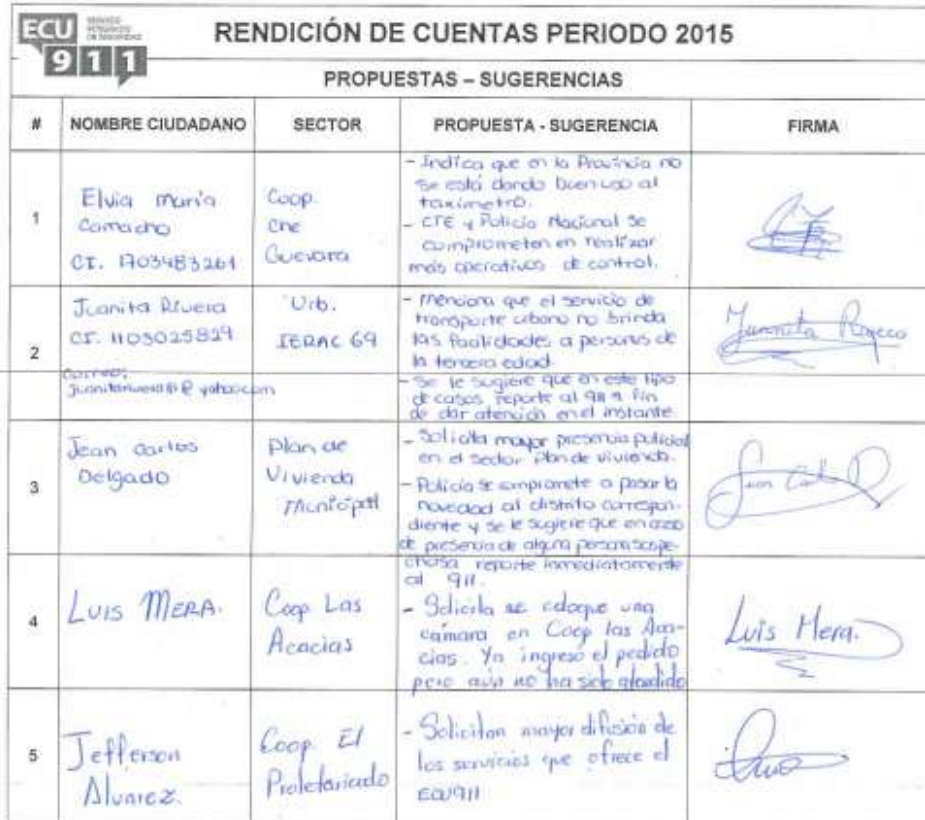 ECU
SERVICIO
INTEGRADO
DE SEGURIDAD
911
RENDICIÓN DE CUENTAS PERIODO 2015
PROPUESTAS – SUGERENCIAS
# NOMBRE CIUDADANO SECTOR PROPUESTA - SUGERENCIA FIRMA
1
Elvia María
Camacho
CI. 1703483261
Coop.
Che
Guevara
- Indica que en la Provincia no
se está dando buen uso al
taxímetro.
- CTE y Policía Nacional se
comprometen en realizar
más operativos de control.
2
Juanita Rivera
CI. 1103025829
Correo:
Urb.
IERAC 69
- Menciona que el servicio de
transporte urbano no brinda
las facilidades a personas de
la tercera edad.
- Se le sugiere que en este tipo
de casos reporte al 911 a fin
de dar atención en el instante.
Juanita
3
Jean Carlos
Delgado
Plan de
Vivienda
Municipal
- Solicita mayor presencia policial
en el sector Plan de vivienda.
- Policía se compromete a pasar la
novedad al distrito correspon-
diente y se le sugiere que en caso
de presencia de alguna persona sospe-
chosa reporte inmediatamente
al 911.
4
LUIS MERA.
Coop. Las
Acacias
- Solicita se coloque una
cámara en Coop las Aca-
cias. Ya ingresó el pedido
pero aún no ha sido atendido
Luis Mera.
5
Jefferson
Alvarez.
Coop. El
Proletariado
- Solicitan mayor difusión de
los servicios que ofrece el
ECU911